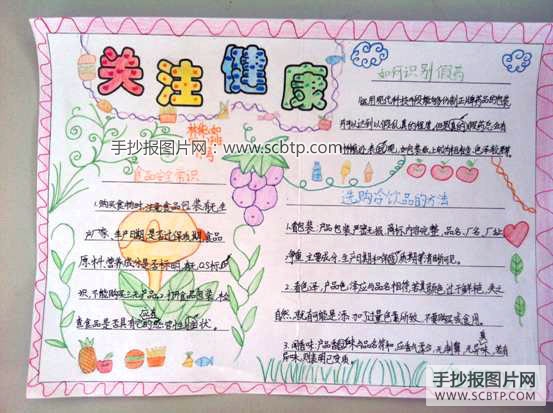 关注健康
如何识别假药
运用现代科技手段能够仿制正牌药品的包装
可以达到以假乱真的程度,但假真的假药总会有
手抄报图片网:www.scbtp.com
食品安全常识
1.购买食物时,注意食品包装,
生产厂家、生产日期,是否过保质期,食品
原料,营养成分是否标明,有无QS标
识,不能购买三无产品。2.打开食品包装,检
查食品是否具有它的感官性状。
选购冷饮品的方法
1.看包装:产品包装严密无损,商标内容完整,品名、厂名、厂址
净重,主要成分、生产日期和保质期等清晰可见。
2.看色泽:产品色泽应与品名相符,若其颜色过于鲜艳,失去
自然,就有可能是添加过量色素所致,不要购买或食用。
3.闻香味:产品香味与品名符和,应香气柔分,无刺鼻,无异味,若有
异味,则表明已变质。
手抄报图片网
WWW.SCBTP.COM